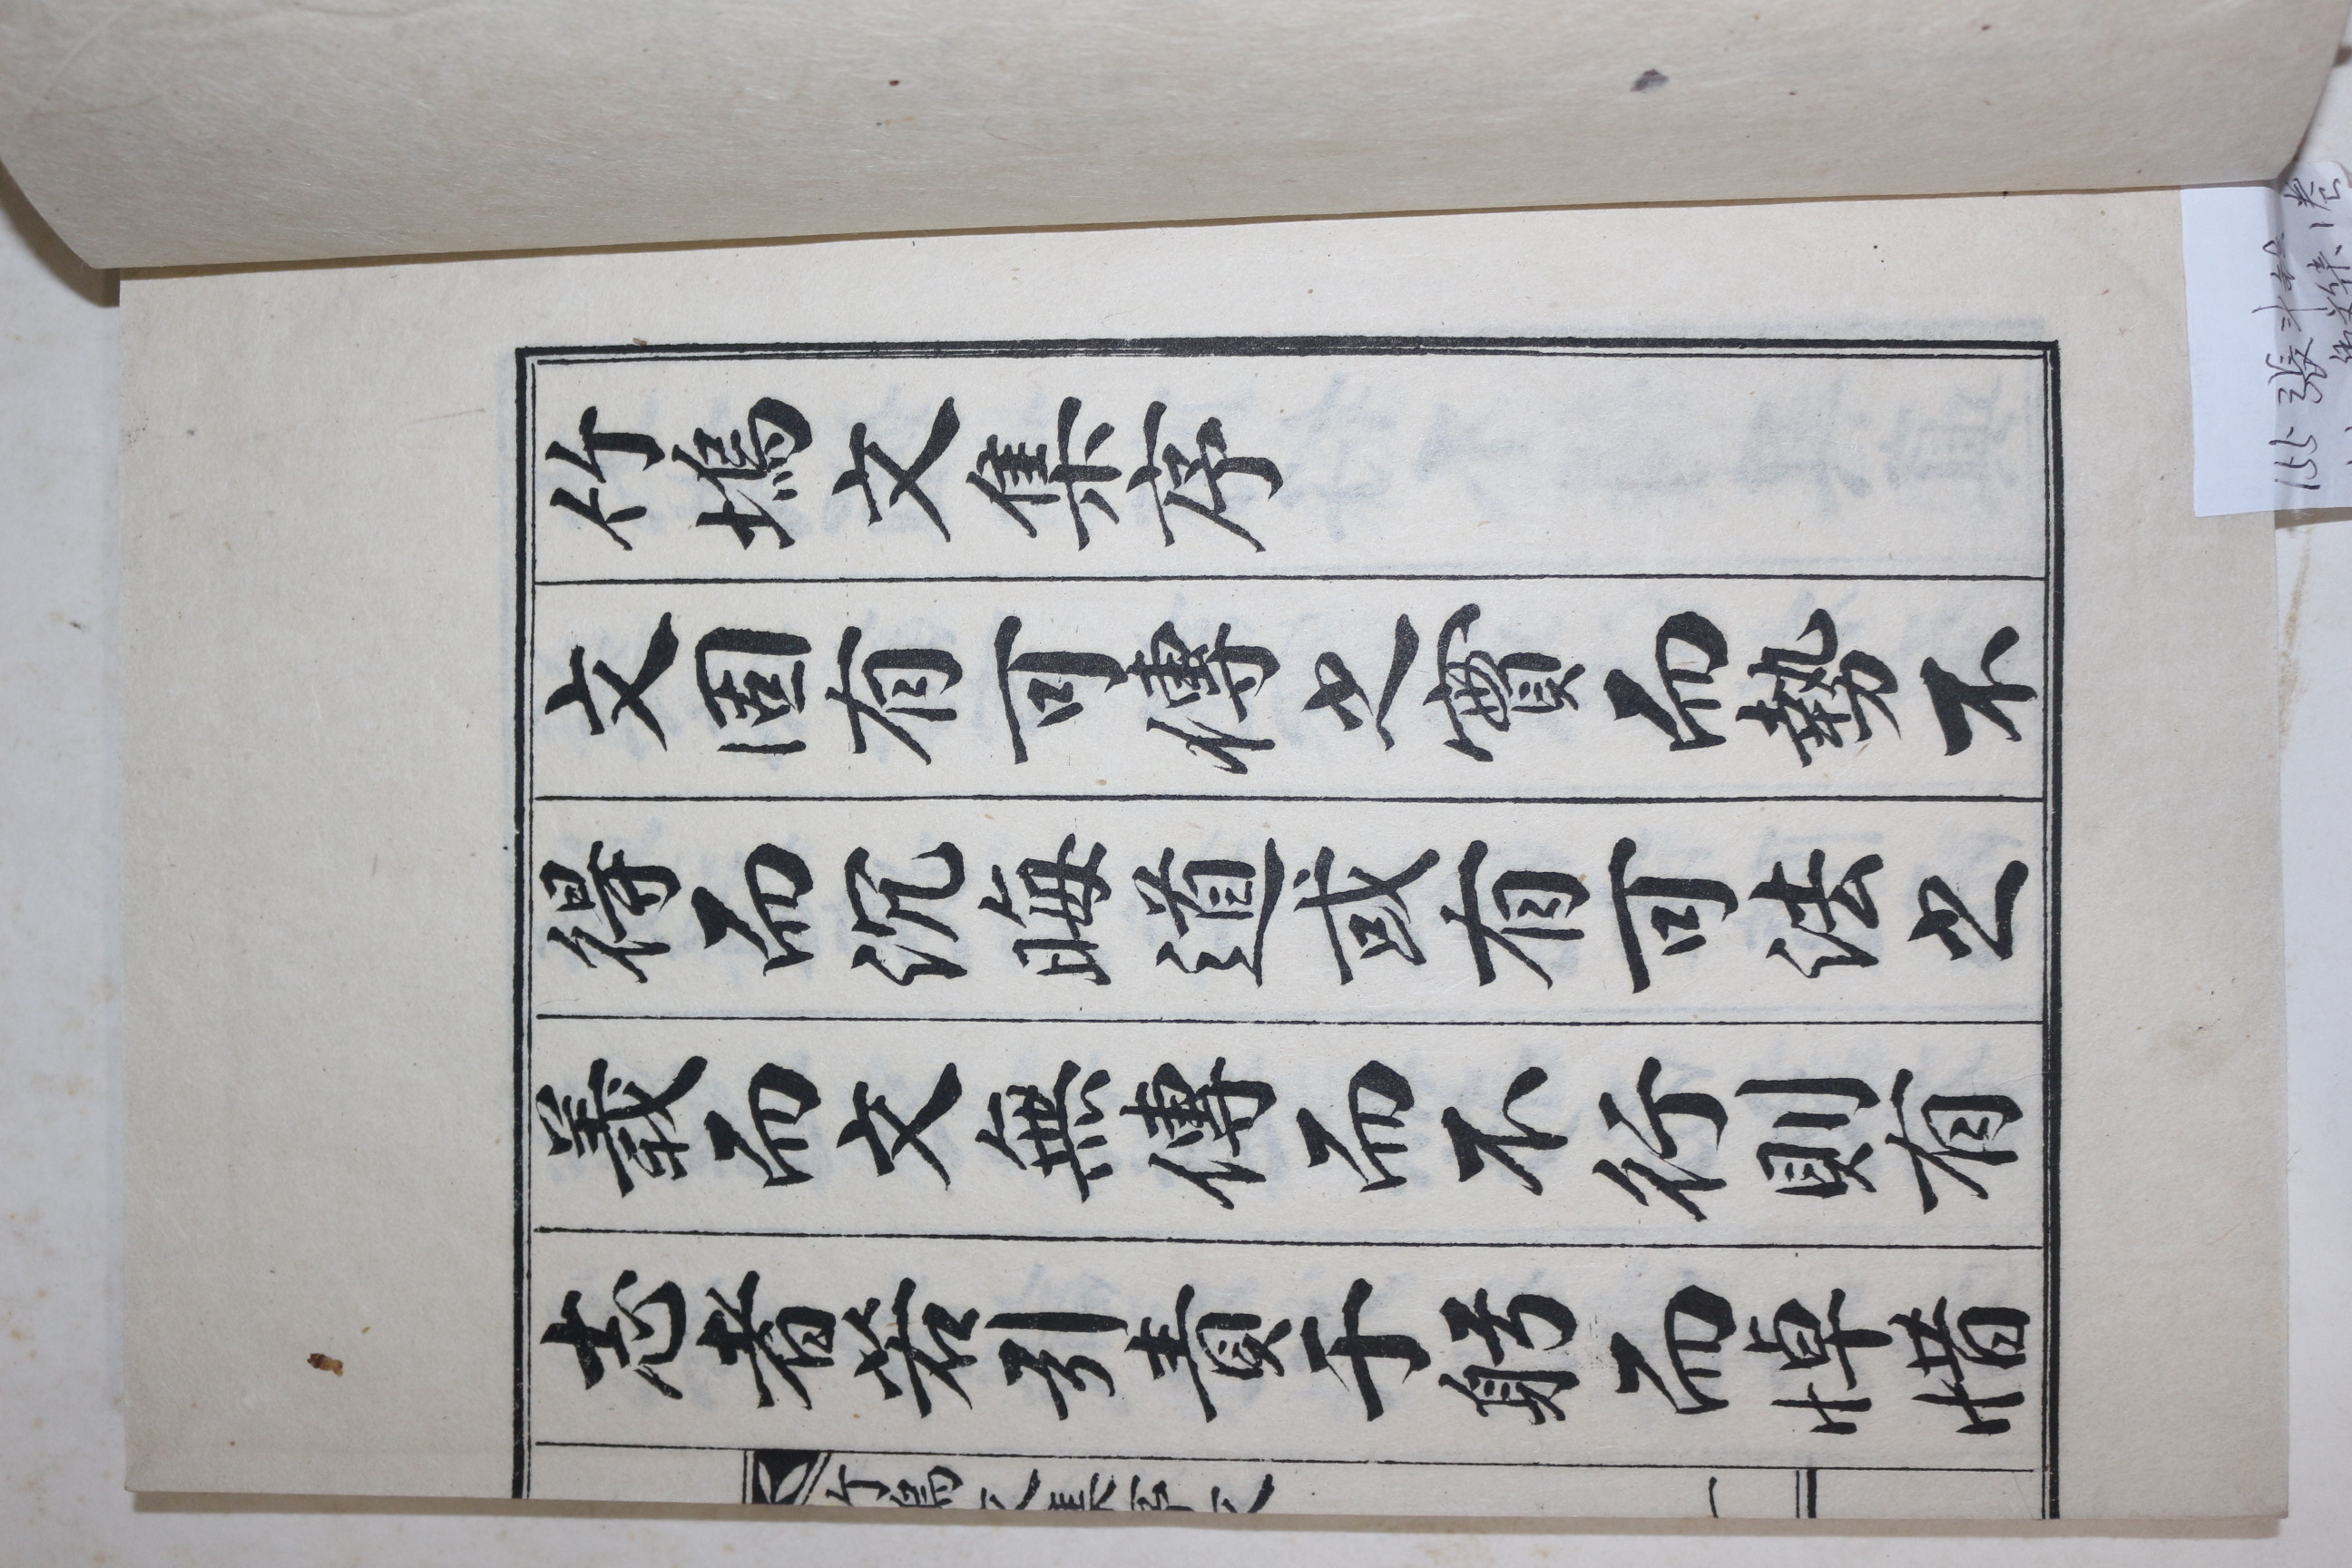 竹塢文集序
文固有可傳之實而勢不
得而沉晦道或有可法之
義而文無傳而不行則有
志者若引責于躬而悼惜
竹塢文集序文
一
155 張斗
文集 1卷